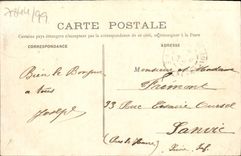 7844/99
CARTE POSTALE
Certains pays étrangers n'acceptent pas la correspondance de ce côté, s'informer à la Poste
CORRESPONDANCE
ADRESSE
Bien le Bonjour
à tous
Joseph
Monsieur et Madame
93 Rue Césaire Oursel
Sanvic
Seine Inf